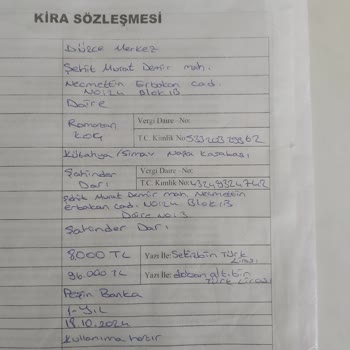 KİRA SÖZLEŞMESİ
Düzce Merkez
Şehit Murat Demir mah.
Necmettin Erbakan cad.
No:24 Blok:B
Daire
Ramazan
Koç
Vergi Daire -No:
T.C. Kimlik No:
Kütahya/Simav Naşa Kasabası
Şahinder
Darı
Vergi Daire -No:
T.C. Kimlik No:
Şehit Murat Demir mah. Necmettin
Erbakan cad. No:24 Blok:B
Daire No:3
Şahinder Darı
8000 TL
Yazı İle: Sekizbin Türk
Lirası
96.000 TL
Yazı İle: doksan altı bin
Türk Lirası
Peşin Banka
1-Yıl
18.10.2024
Kullanıma hazır